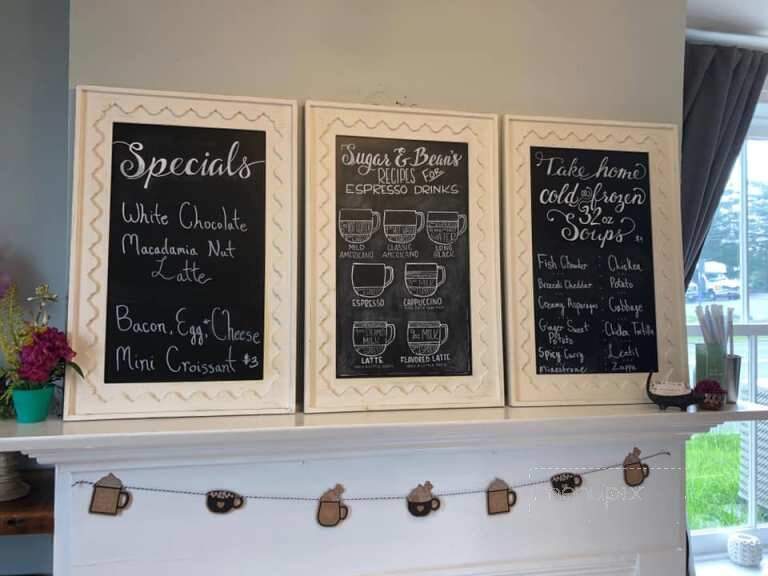 Specials
White Chocolate
Macadamia Nut
Latte
Bacon, Egg, Cheese
Mini Croissant $3
Sugar & Bean's
RECIPES FOR
ESPRESSO DRINKS
MILD
AMERICANO
CLASSIC
AMERICANO
LONG
BLACK
ESPRESSO
CAPPUCCINO
LATTE
FLAVORED LATTE
Take home
cold or frozen
32 oz
Soups
Fish Chowder
Broccoli Cheddar
Creamy Asparagus
Ginger Sweet
Potato
Spicy Curry
Minestrone
Chicken
Potato
Cabbage
Chicken Tortilla
Lentil
Zuppa
menupix